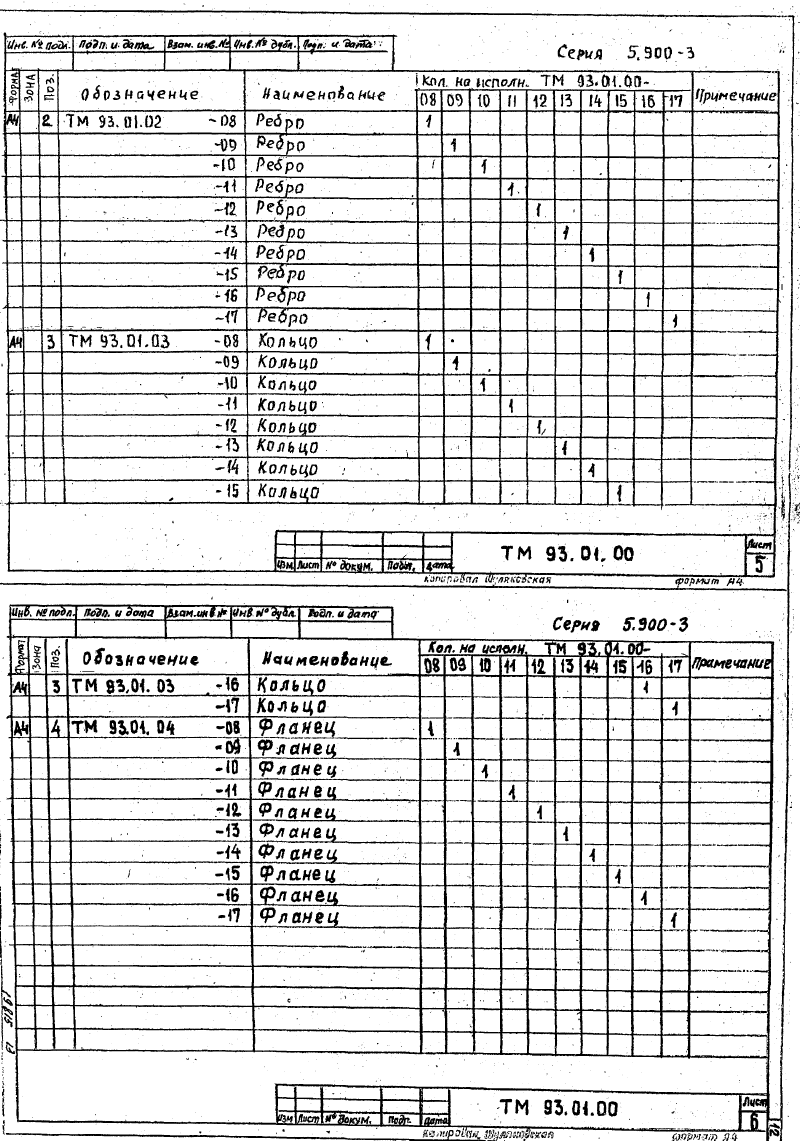 Инв. № подл. Подп. и дата Взам. инв. № Инв. № дубл. Подп. и дата
Серия 5.900-3
Формат Зона Поз. Обозначение Наименование Кол. на исполн. ТМ 93.01.00- Примечание
08 09 10 11 12 13 14 15 16 17
А4 2 ТМ 93.01.02 -08 Ребро 1
-09 Ребро 1
-10 Ребро 1
-11 Ребро 1
-12 Ребро 1
-13 Ребро 1
-14 Ребро 1
-15 Ребро 1
-16 Ребро 1
-17 Ребро 1
А4 3 ТМ 93.01.03 -08 Кольцо 1
-09 Кольцо 1
-10 Кольцо 1
-11 Кольцо 1
-12 Кольцо 1
-13 Кольцо 1
-14 Кольцо 1
-15 Кольцо 1
Изм Лист № докум. Подп. Дата
ТМ 93.01.00
Лист
5
Копировал Шуляковская формат А4
Инв. № подл. Подп. и дата Взам. инв № Инв № дубл. Подп. и дата
Серия 5.900-3
Формат Зона Поз. Обозначение Наименование Кол. на исполн. ТМ 93.01.00- Примечание
08 09 10 11 12 13 14 15 16 17
А4 3 ТМ 93.01.03 -16 Кольцо 1
-17 Кольцо 1
А4 4 ТМ 93.01.04 -08 Фланец 1
-09 Фланец 1
-10 Фланец 1
-11 Фланец 1
-12 Фланец 1
-13 Фланец 1
-14 Фланец 1
-15 Фланец 1
-16 Фланец 1
-17 Фланец 1
Изм Лист № докум. Подп. Дата
ТМ 93.01.00
Лист
6
Копировал Шуляковская формат А4
12